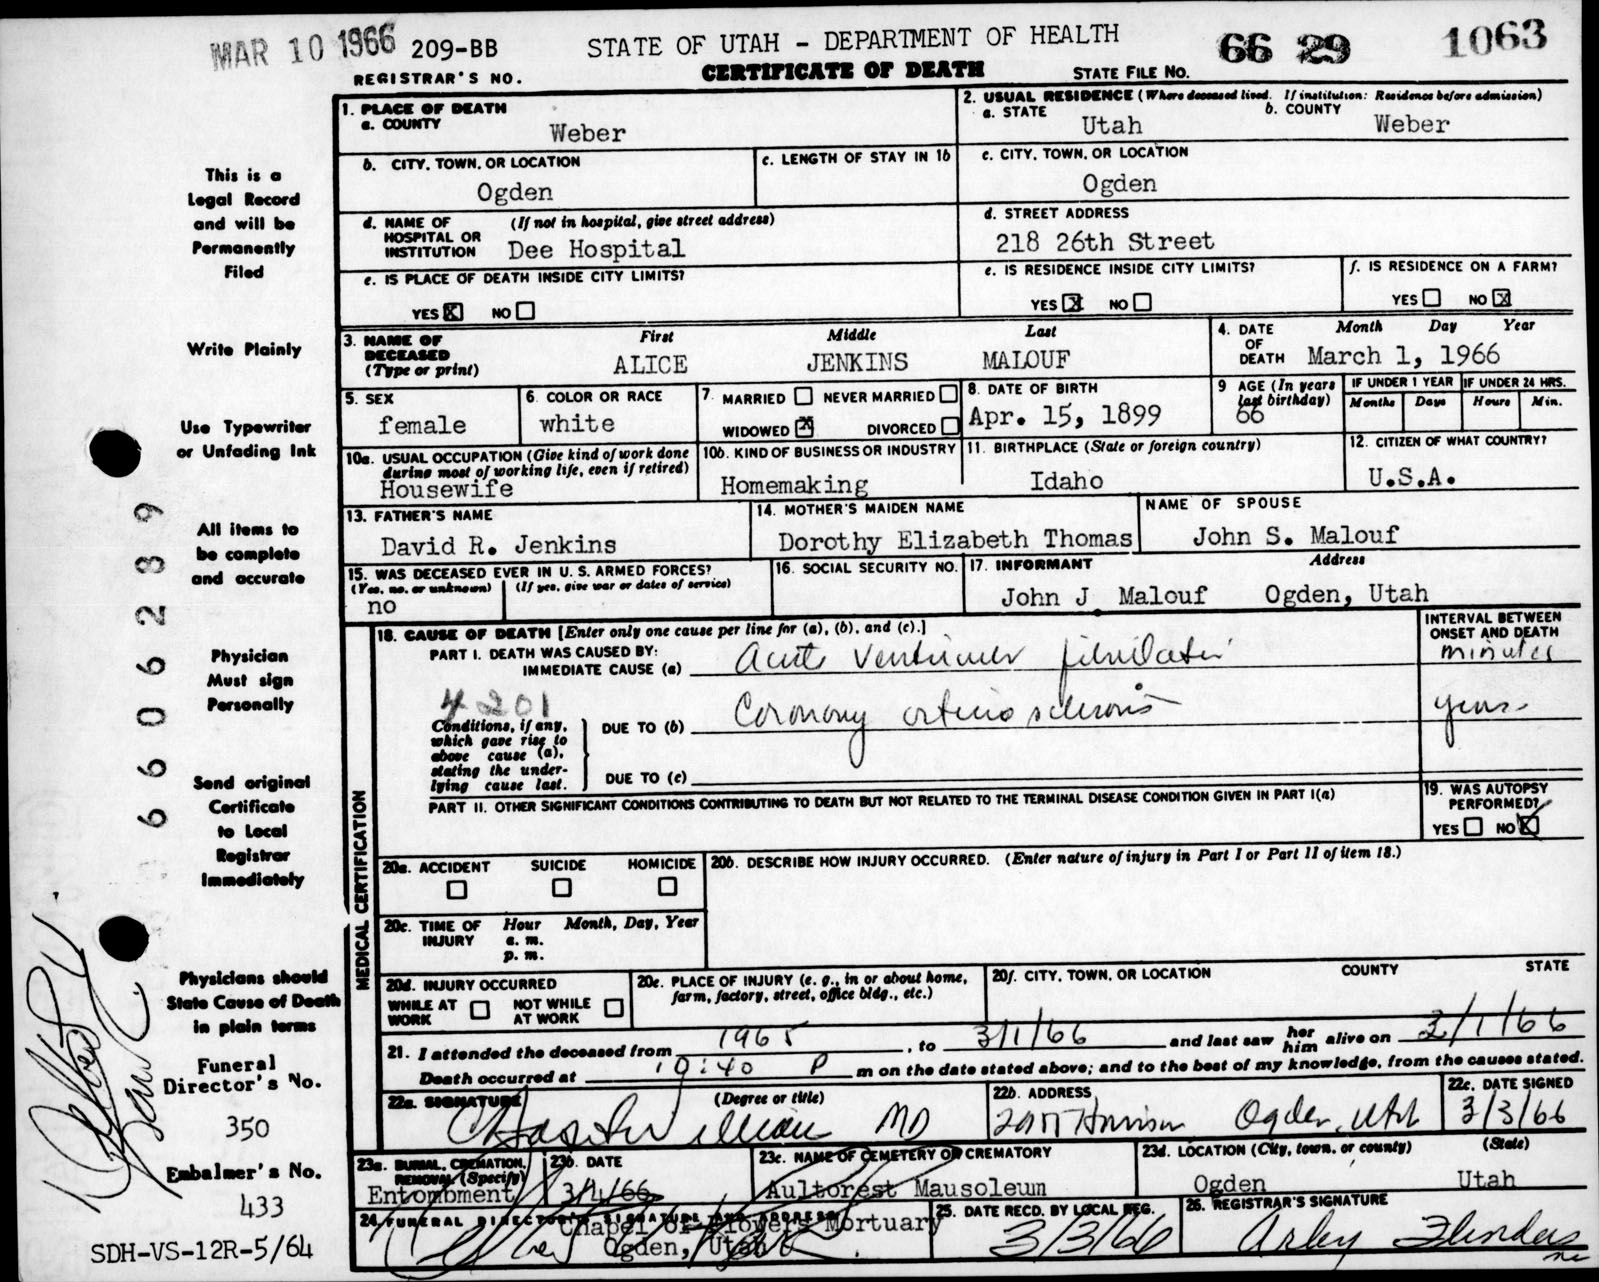 MAR 10 1966 209-BB STATE OF UTAH - DEPARTMENT OF HEALTH 66 29 1063
REGISTRAR'S NO. CERTIFICATE OF DEATH STATE FILE NO.
1. PLACE OF DEATH
a. COUNTY Weber
2. USUAL RESIDENCE (Where deceased lived. If institution: Residence before admission)
a. STATE Utah b. COUNTY Weber
b. CITY, TOWN, OR LOCATION Ogden
c. LENGTH OF STAY IN 1b
c. CITY, TOWN, OR LOCATION Ogden
d. NAME OF HOSPITAL OR INSTITUTION (If not in hospital, give street address) Dee Hospital
d. STREET ADDRESS
218 26th Street
e. IS PLACE OF DEATH INSIDE CITY LIMITS?
YES X NO
e. IS RESIDENCE INSIDE CITY LIMITS?
YES X NO
f. IS RESIDENCE ON A FARM?
YES NO X
3. NAME OF DECEASED (Type or print)
First Middle Last
ALICE JENKINS MALOUF
4. DATE OF DEATH Month Day Year
March 1, 1966
5. SEX
female
6. COLOR OR RACE
white
7. MARRIED NEVER MARRIED
WIDOWED X DIVORCED
8. DATE OF BIRTH
Apr. 15, 1899
9 AGE (In years last birthday)
66
IF UNDER 1 YEAR IF UNDER 24 HRS.
Months Days Hours Min.
10a. USUAL OCCUPATION (Give kind of work done during most of working life, even if retired)
Housewife
10b. KIND OF BUSINESS OR INDUSTRY
Homemaking
11. BIRTHPLACE (State or foreign country)
Idaho
12. CITIZEN OF WHAT COUNTRY?
U.S.A.
13. FATHER'S NAME
David R. Jenkins
14. MOTHER'S MAIDEN NAME
Dorothy Elizabeth Thomas
NAME OF SPOUSE
John S. Malouf
15. WAS DECEASED EVER IN U. S. ARMED FORCES?
(Yes, no, or unknown) (If yes, give war or dates of service)
no
16. SOCIAL SECURITY NO.
17. INFORMANT Address
John J. Malouf Ogden, Utah
MEDICAL CERTIFICATION
18. CAUSE OF DEATH [Enter only one cause per line for (a), (b), and (c).]
INTERVAL BETWEEN ONSET AND DEATH
PART I. DEATH WAS CAUSED BY:
IMMEDIATE CAUSE (a) Acute Ventricular fibrillation minutes
4201
Conditions, if any, which gave rise to above cause (a), stating the underlying cause last.
DUE TO (b) Coronary arteriosclerosis years
DUE TO (c)
PART II. OTHER SIGNIFICANT CONDITIONS CONTRIBUTING TO DEATH BUT NOT RELATED TO THE TERMINAL DISEASE CONDITION GIVEN IN PART I(a)
19. WAS AUTOPSY PERFORMED?
YES NO X
20a. ACCIDENT SUICIDE HOMICIDE
20b. DESCRIBE HOW INJURY OCCURRED. (Enter nature of injury in Part I or Part II of item 18.)
20c. TIME OF INJURY Hour Month, Day, Year
a. m.
p. m.
20d. INJURY OCCURRED
WHILE AT WORK NOT WHILE AT WORK
20e. PLACE OF INJURY (e. g., in or about home, farm, factory, street, office bldg., etc.)
20f. CITY, TOWN, OR LOCATION COUNTY STATE
21. I attended the deceased from 1965, to 3/1/66 and last saw her him alive on 3/1/66
Death occurred at 10:40 P m on the date stated above; and to the best of my knowledge, from the causes stated.
22a. SIGNATURE (Degree or title)
MD
22b. ADDRESS
Harrison Ogden, Utah
22c. DATE SIGNED
3/3/66
23a. BURIAL, CREMATION, REMOVAL (Specify)
Entombment
23b. DATE
3/4/66
23c. NAME OF CEMETERY OR CREMATORY
Aultorest Mausoleum
23d. LOCATION (City, town, or county) (State)
Ogden Utah
24. FUNERAL DIRECTOR'S SIGNATURE AND ADDRESS
Chapel of Flowers Mortuary
Ogden, Utah
25. DATE RECD. BY LOCAL REG.
3/3/66
26. REGISTRAR'S SIGNATURE
Arley Flinders
This is a
Legal Record
and will be
Permanently
Filed
Write Plainly
Use Typewriter
or Unfading Ink
All items to
be complete
and accurate
Physician
Must sign
Personally
Send original
Certificate
to Local
Registrar
Immediately
Physicians should
State Cause of Death
in plain terms
Funeral
Director's No.
350
Embalmer's No.
433
SDH-VS-12R-5/64
6606289